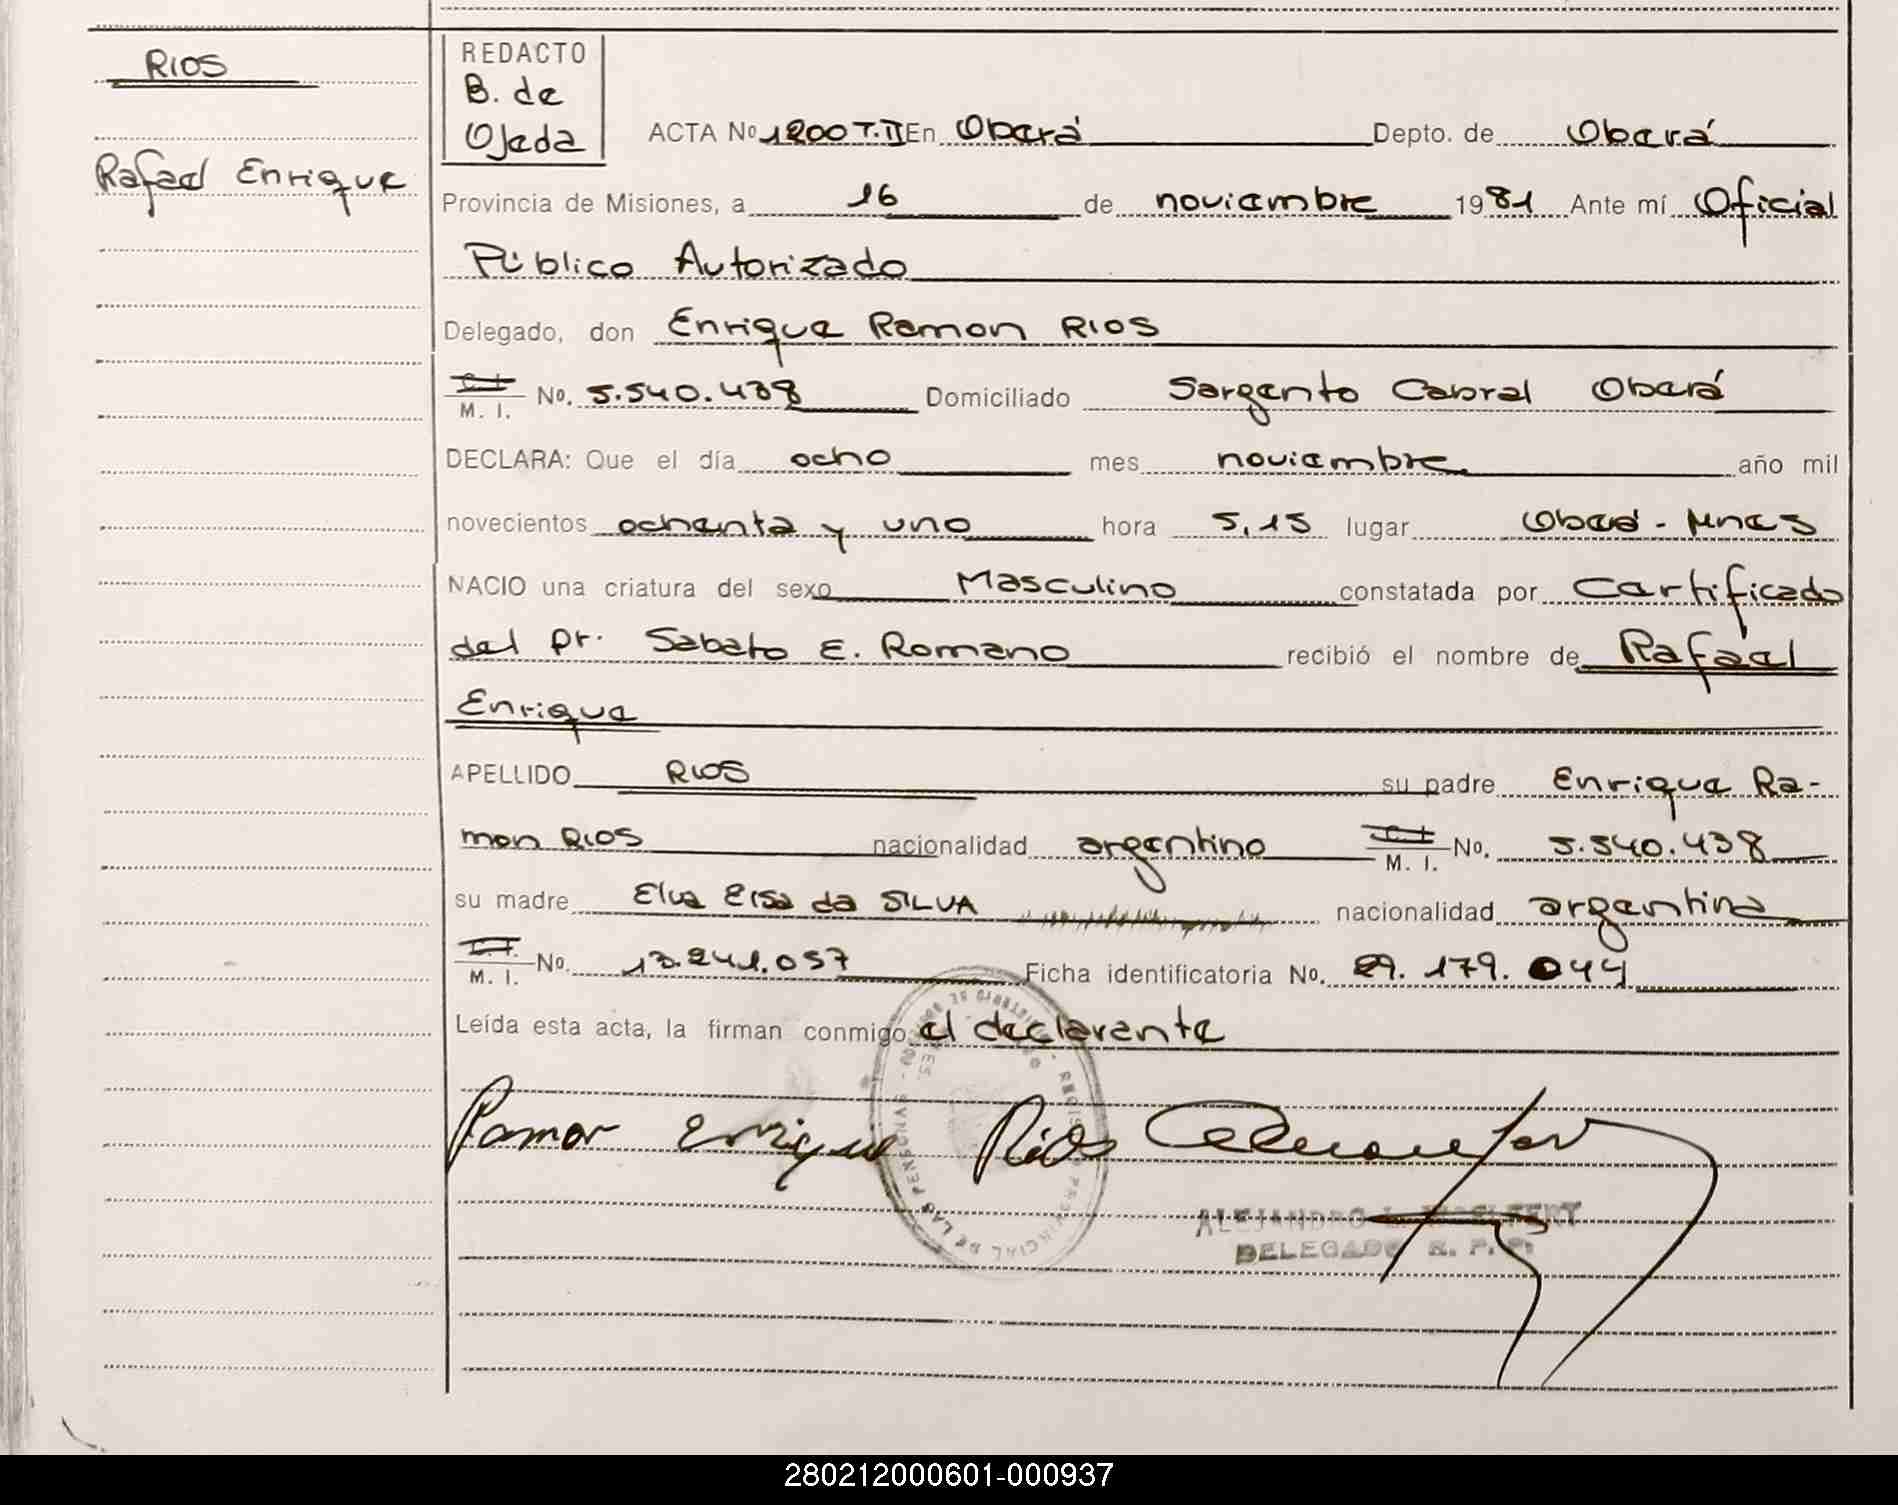 RIOS
Rafael Enrique
REDACTO
B. de
Ojeda
ACTA Nº 1200 T.II En Oberá Depto. de Oberá
Provincia de Misiones, a 16 de noviembre 1981 Ante mí Oficial
Público Autorizado
Delegado, don Enrique Ramon RIOS
C. I. M. I. No. 5.540.438 Domiciliado Sargento Cabral Oberá
DECLARA: Que el día ocho mes noviembre año mil
novecientos ochenta y uno hora 5,15 lugar Oberá - Mnes
NACIO una criatura del sexo Masculino constatada por Certificado
del Dr. Sabato E. Romano recibió el nombre de Rafael
Enrique
APELLIDO RIOS su padre Enrique Ra-
mon RIOS nacionalidad argentino C. I. M. I. No. 5.540.438
su madre Elva Elsa da SILVA nacionalidad argentina
C. I. M. I. No. 13.241.057 Ficha identificatoria No. 29.179.044
Leída esta acta, la firman conmigo el declarante
Ramon Enrique Rios
ALEJANDRO
DELEGADO R. P. P.
280212000601-000937